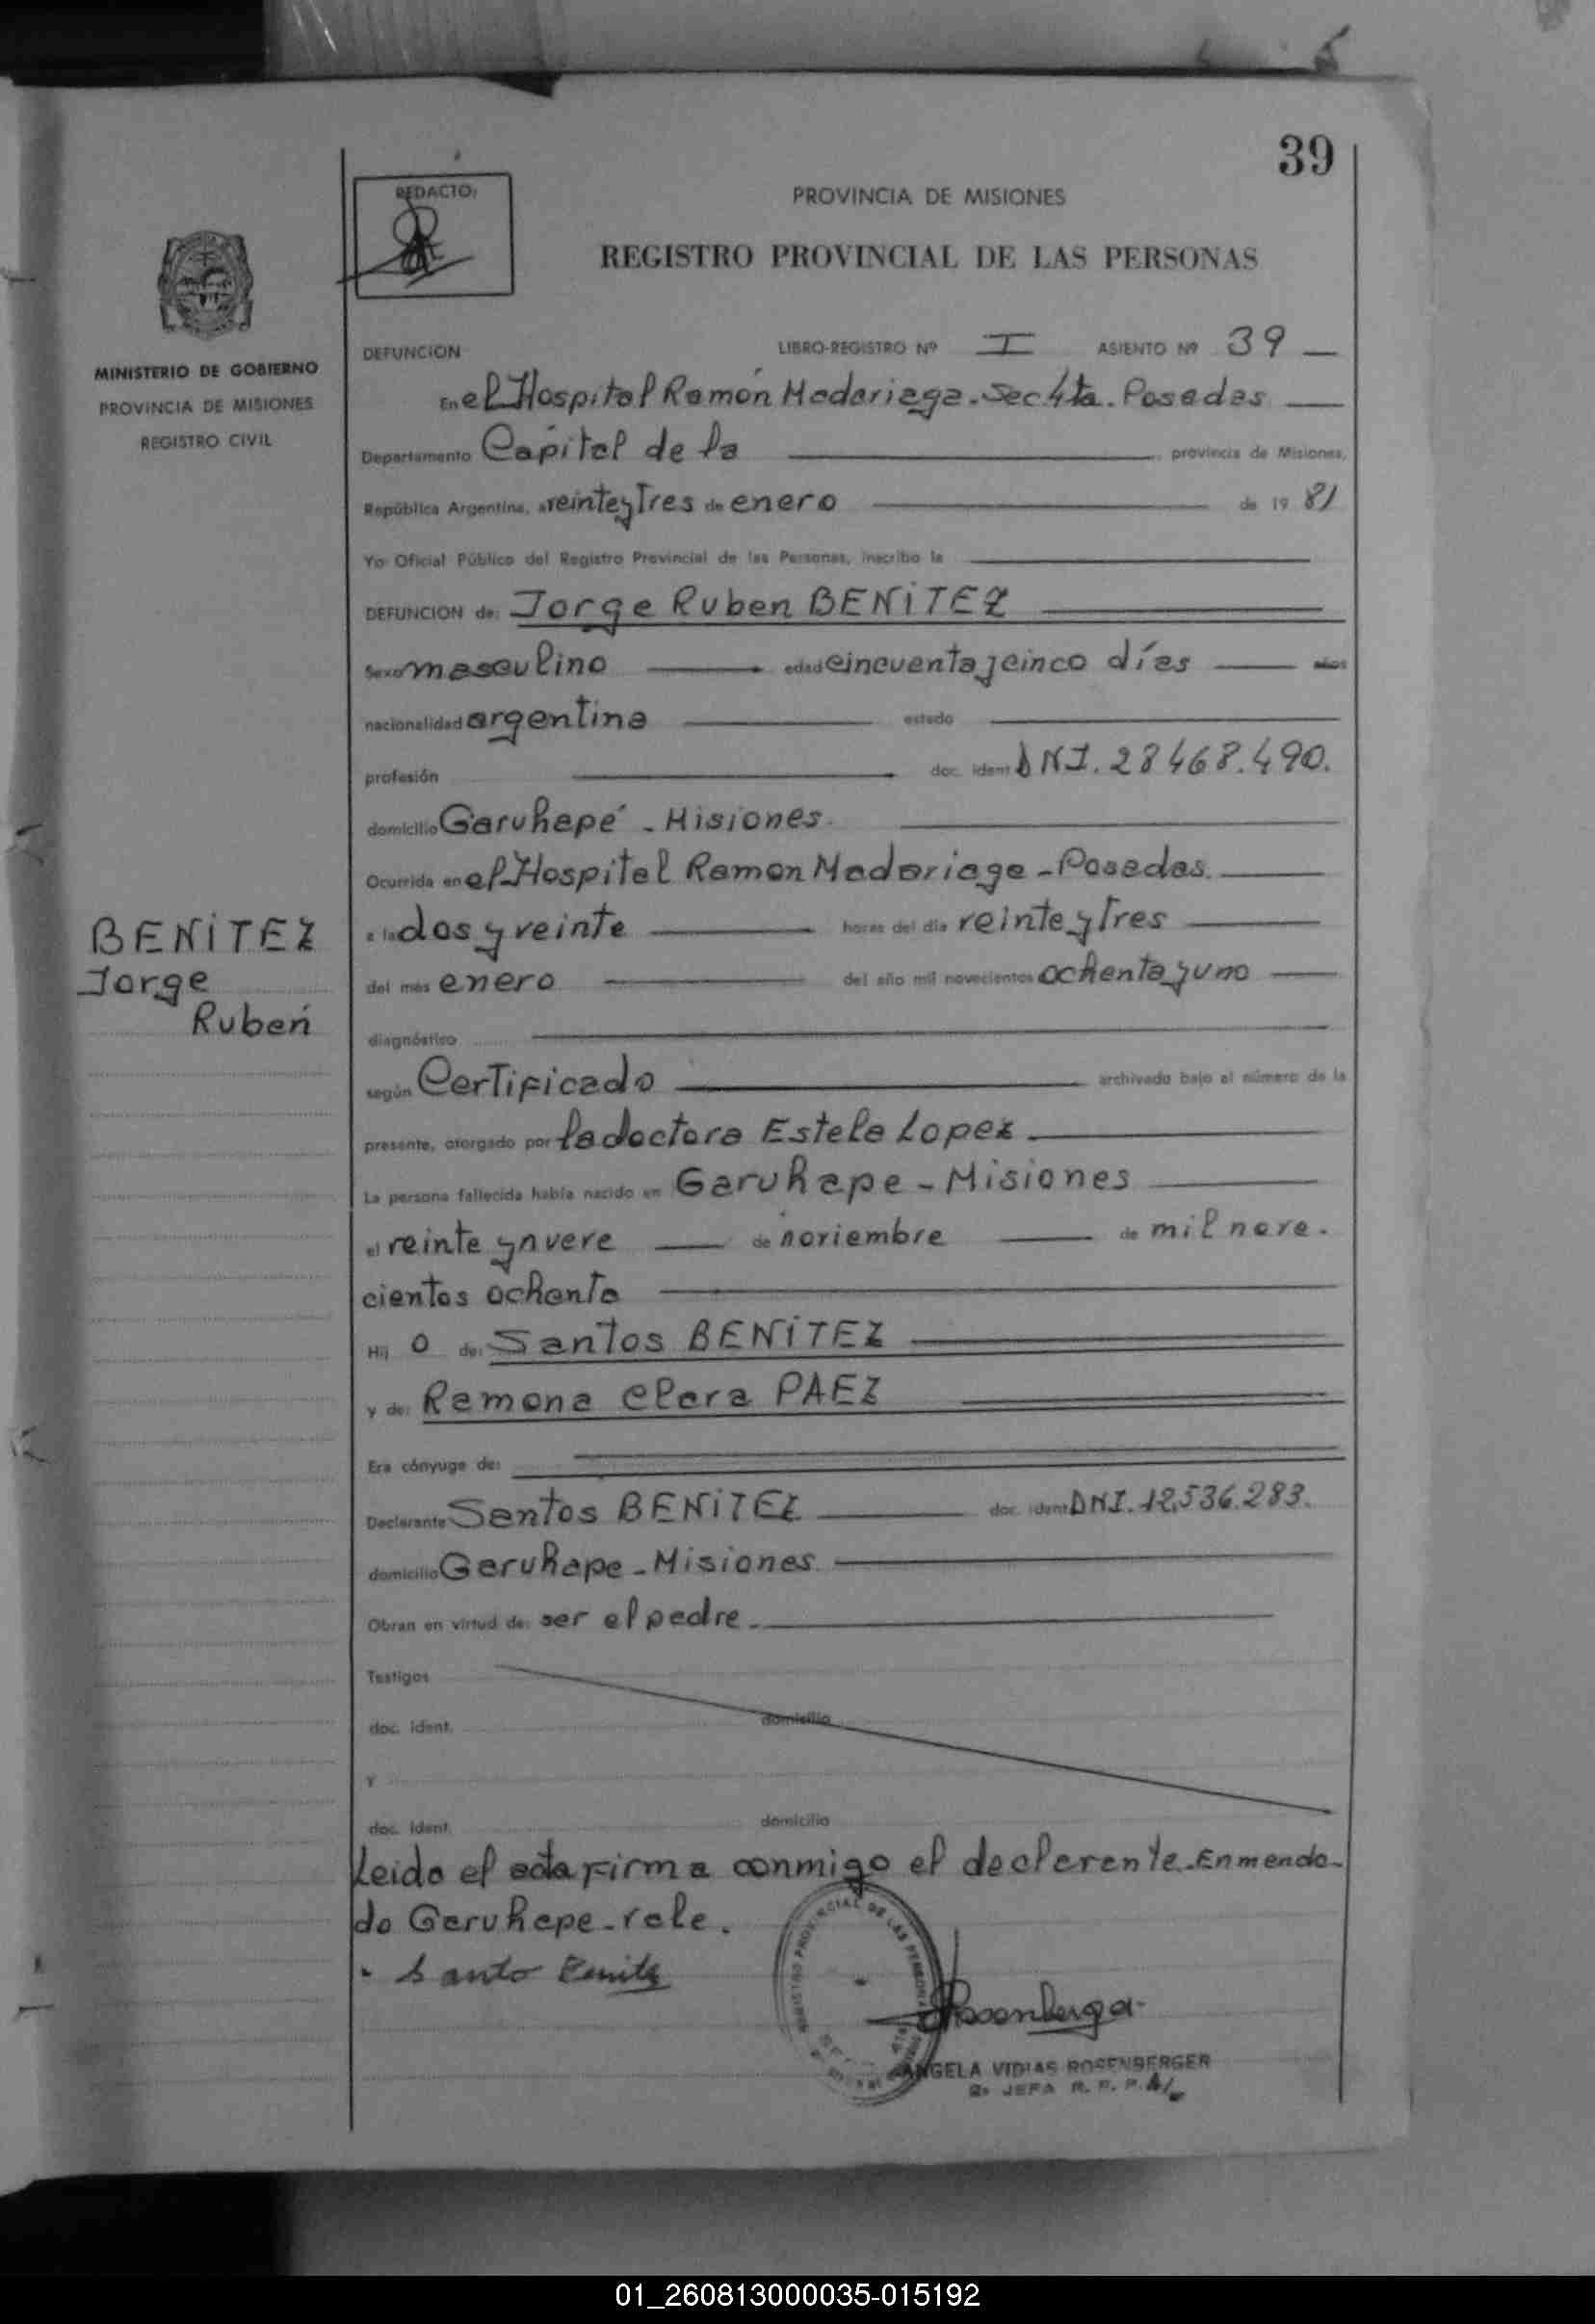 39
REDACTO:
PROVINCIA DE MISIONES
REGISTRO PROVINCIAL DE LAS PERSONAS
MINISTERIO DE GOBIERNO
PROVINCIA DE MISIONES
REGISTRO CIVIL
DEFUNCION LIBRO-REGISTRO Nº I ASIENTO Nº 39
En el Hospital Ramón Madariaga. Sec 4ta. Posadas
Departamento Capital de la provincia de Misiones,
República Argentina, a veinte y Tres de enero de 19 81
Yo Oficial Público del Registro Provincial de las Personas, inscribo la
DEFUNCION de: Jorge Ruben BENITEZ
Sexo masculino edad cincuenta y cinco días años
nacionalidad argentina estado
profesión doc. ident DNI. 28468.490.
domicilio Garuhapé - Misiones.
Ocurrida en el Hospital Ramon Madariaga - Posadas.
a la dos y veinte horas del día veinte y Tres
del mes enero del año mil novecientos ochenta y uno
BENITEZ
Jorge
Ruben
diagnóstico
según Certificado archivado bajo el número de la
presente, otorgado por la doctora Estela Lopez
La persona fallecida había nacido en Garuhape - Misiones
el veinte y nueve de noviembre de mil nove.
cientos ochenta
Hij o de: Santos BENITEZ
y de: Ramona Clara PAEZ
Era cónyuge de:
Declarante Santos BENITEZ doc. ident DNI. 12.536.283.
domicilio Garuhape - Misiones.
Obran en virtud de: ser el padre.
Testigos
doc. ident. domicilio
Y
doc. ident. domicilio
Leida el acta firma conmigo el declarente. Enmenda-
do Garuhape - vale.
Santo Benitz
REGISTRO PROVINCIAL DE LAS PERSONAS
ANGELA VIDIAS ROSENBERGER
JEFA R. P. P.
01_260813000035-015192